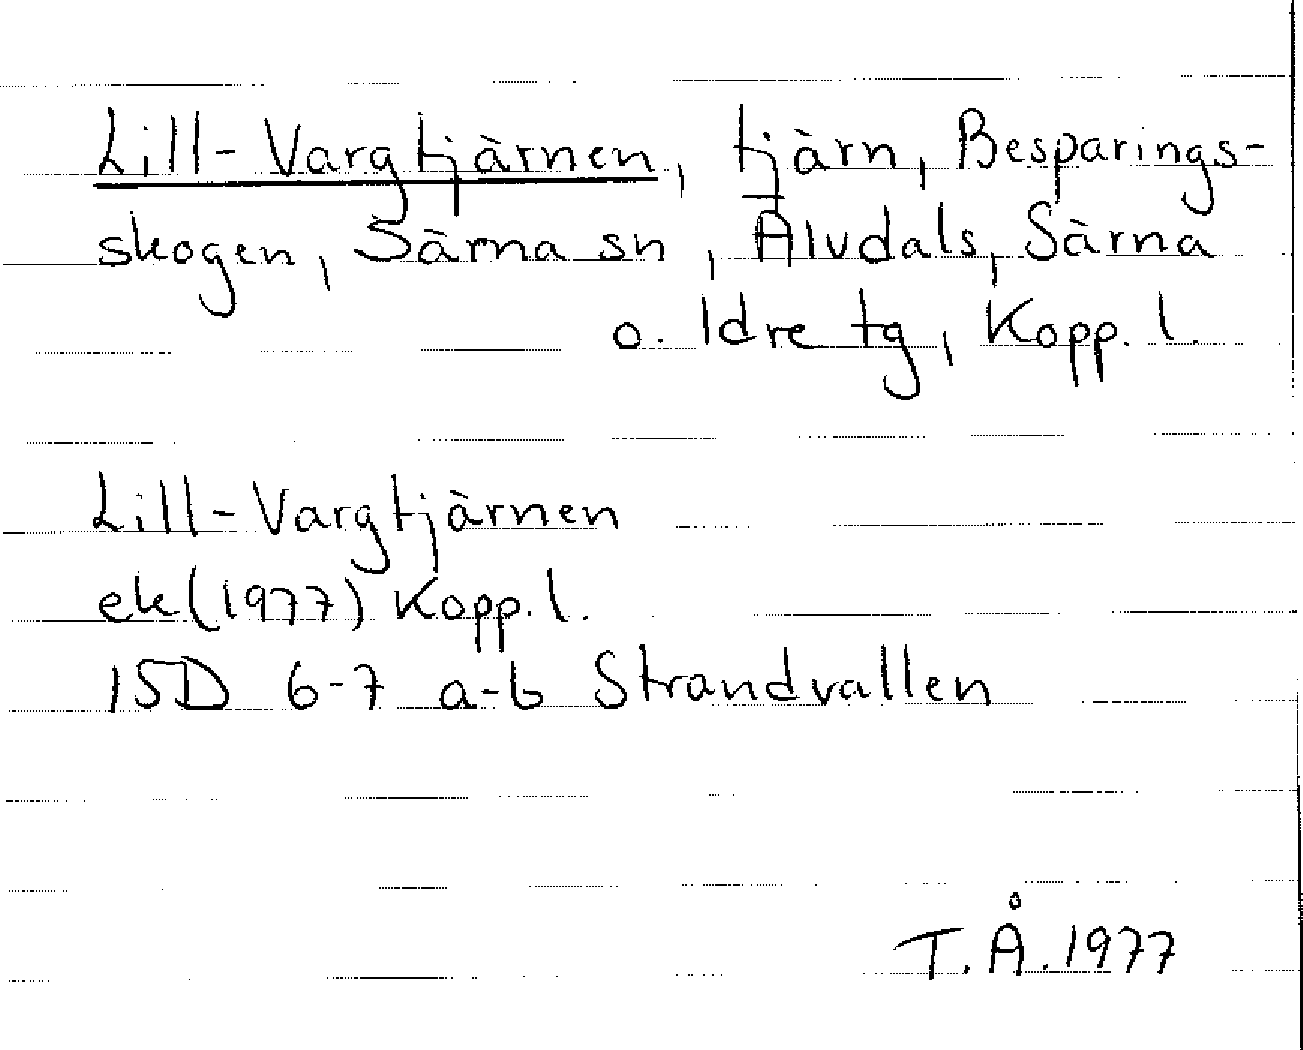 Lill-Vargtjärnen, tjärn, Besparings-
skogen, Särna sn, Älvdals, Särna
o. Idre tg, Kopp. l.
Lill-Vargtjärnen
ek (1977) Kopp. l.
15D 6-7 a-b Strandvallen
T. Å. 1977